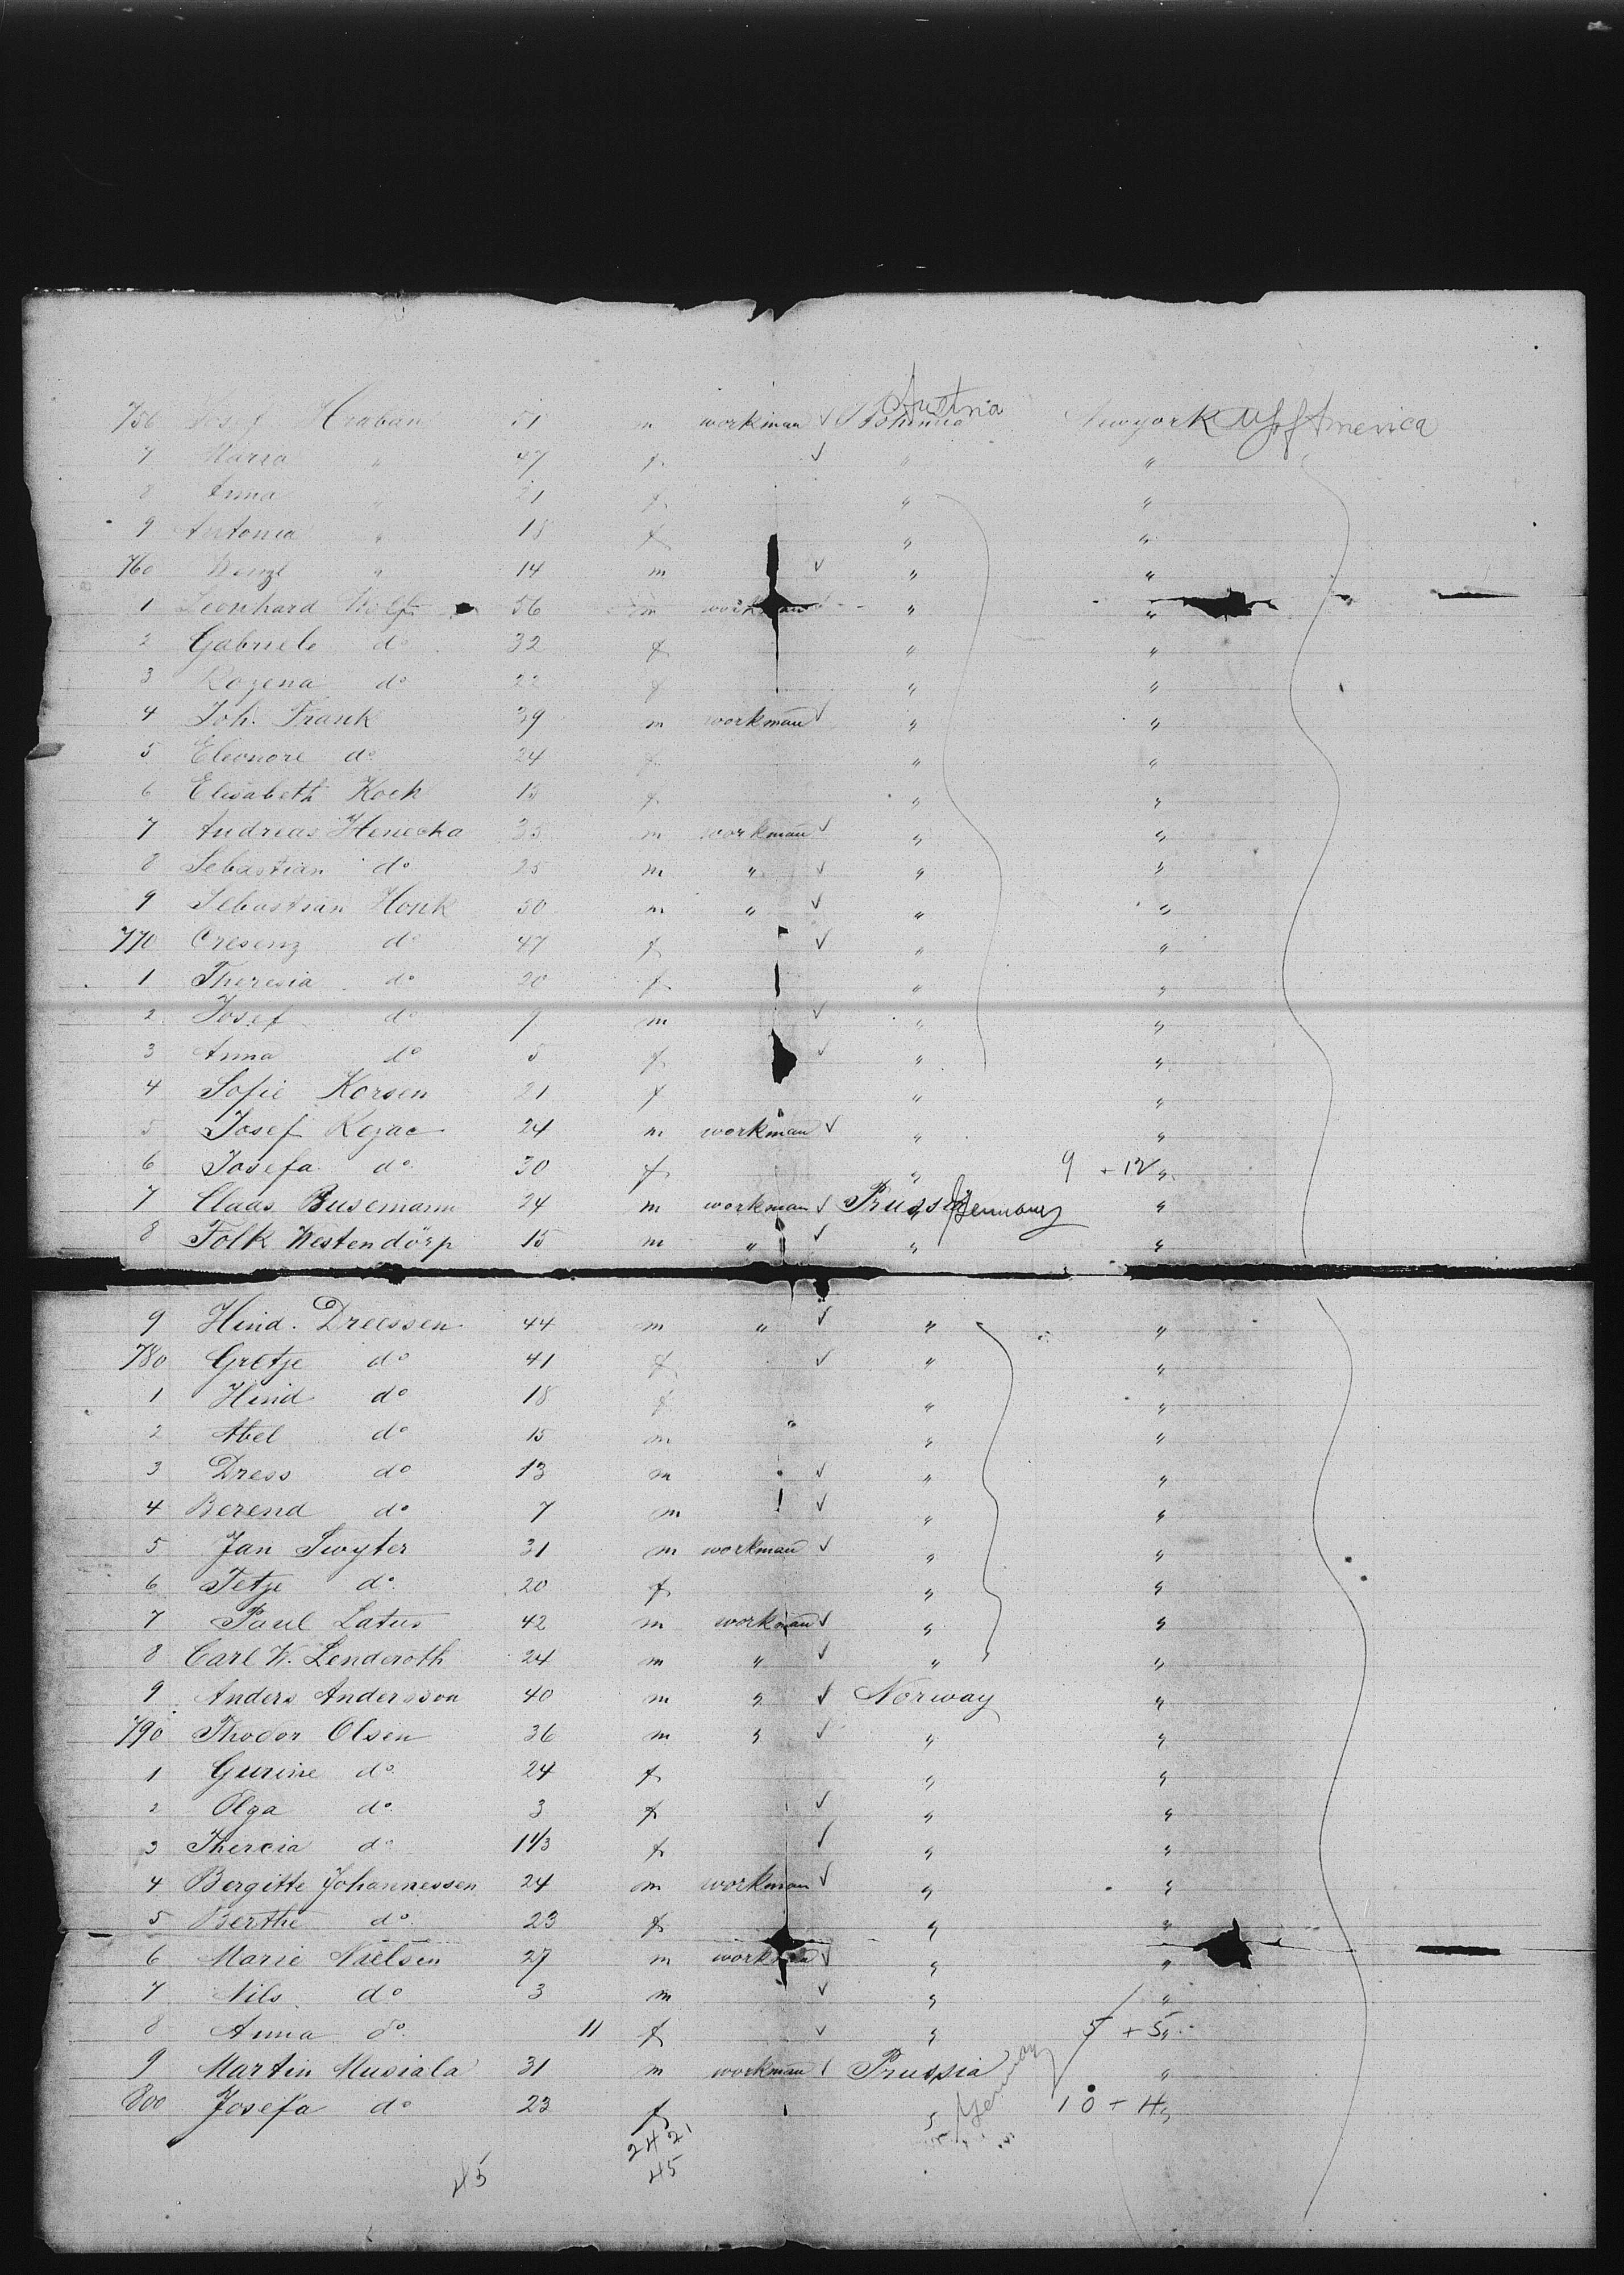 756 Josef Hraban 51 m workman ✓ Bohemia Austria Newyork US of America
7 Maria " 47 f ✓ " "
8 Anna " 21 f " "
9 Antonia " 18 f " "
760 Wenzl " 14 m ✓ " "
1 Leonhard Wolf 56 m workman ✓ " "
2 Gabriele do 32 f " "
3 Rozena do 22 f " "
4 Joh. Frank 39 m workman ✓ " "
5 Eleonore do 24 f " "
6 Elisabeth Kock 15 f " "
7 Andreas Henecka 35 m workman ✓ " "
8 Sebastian do 25 m " ✓ " "
9 Sebastian Honk 50 m " ✓ " "
770 Cresenz do 47 f ✓ " "
1 Theresia do 20 f " "
2 Josef do 9 m ✓ " "
3 Anna do 5 f ✓ " "
4 Sofie Korsen 21 f " "
5 Josef Kezac 24 m workman ✓ " "
6 Josefa do 30 f " 9 + 12 "
7 Claas Busemann 24 m workman ✓ Prussia Germany "
8 Folk Westendörp 15 m " ✓ " "
9 Hind. Dreessen 44 m " ✓ " "
780 Gretje do 41 f ✓ " "
1 Hind do 18 f " "
2 Abel do 15 m " " "
3 Dress do 13 m ✓ " "
4 Berend do 7 m ✓ " "
5 Jan Swyter 31 m workman ✓ " "
6 Tetje do 20 f " "
7 Paul Latus 42 m workman ✓ " "
8 Carl W. Lenderoth 24 m " ✓ " "
9 Anders Andersson 40 m " ✓ Norway "
790 Thodor Olsen 36 m " ✓ " "
1 Gurine do 24 f " "
2 Olga do 3 f ✓ " "
3 Thercia do 1 1/3 f ✓ " "
4 Bergitte Johannessen 24 m workman ✓ " "
5 Berthe do 23 f " "
6 Marie Nielsen 27 m workman ✓ " "
7 Nils do 3 m ✓ " "
8 Anna do 11 f ✓ " 5 + 5 "
9 Martin Musiala 31 m workman ✓ Prussia Germany "
800 Josefa do 23 f " 10 + 4 "
24 21
45 45